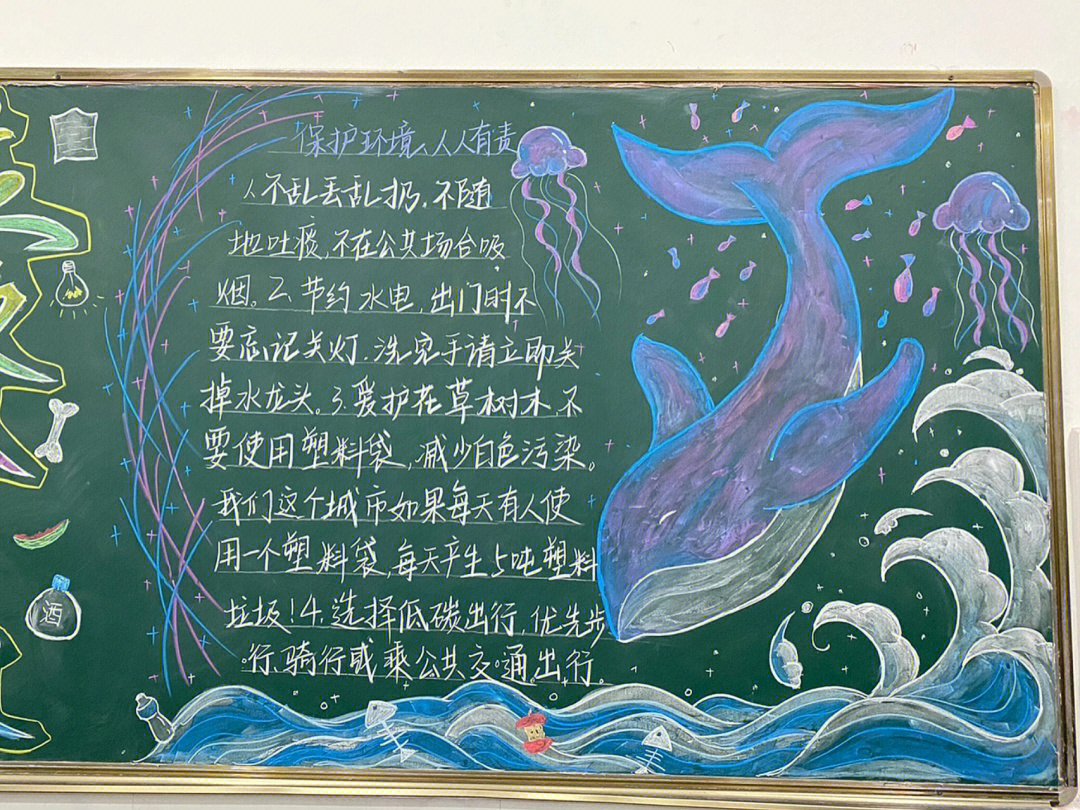 保护环境、人人有责
1、不乱丢乱扔、不随
地吐痰,不在公共场合吸
烟。2、节约水电,出门时不
要忘记关灯、洗完手请立即关
掉水龙头。3、爱护花草树木、不
要使用塑料袋,减少白色污染。
我们这个城市如果每天有人使
用一个塑料袋,每天产生5吨塑料
垃圾!4、选择低碳出行,优先步
行、骑行或乘公共交通出行。
酒